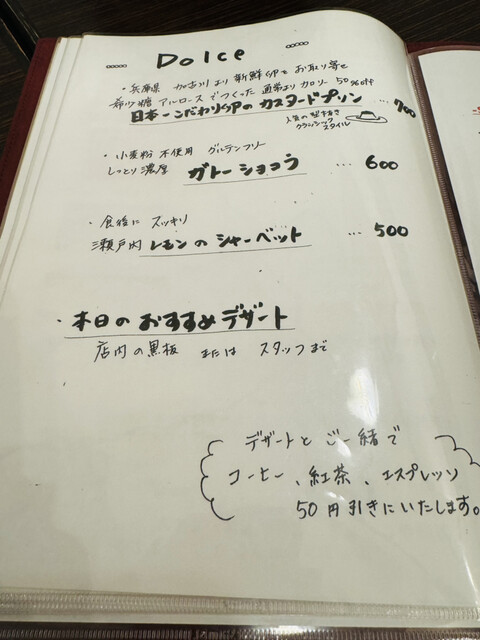 ..... Dolce .....
・兵庫県 加古川より新鮮卵をお取り寄せ
希少糖 アルロースでつくった 通常よりカロリー50%off
日本一こだわり卵のカスタードプリン ... 700
人気の型抜き
クラシック
スタイル
・小麦粉不使用 グルテンフリー
しっとり濃厚 ガトーショコラ ... 600
・食後に スッキリ
瀬戸内 レモンのシャーベット ... 500
・本日のおすすめデザート
店内の黒板 または スタッフまで
デザートとご一緒で
コーヒー、紅茶、エスプレッソ
50円引きにいたします。